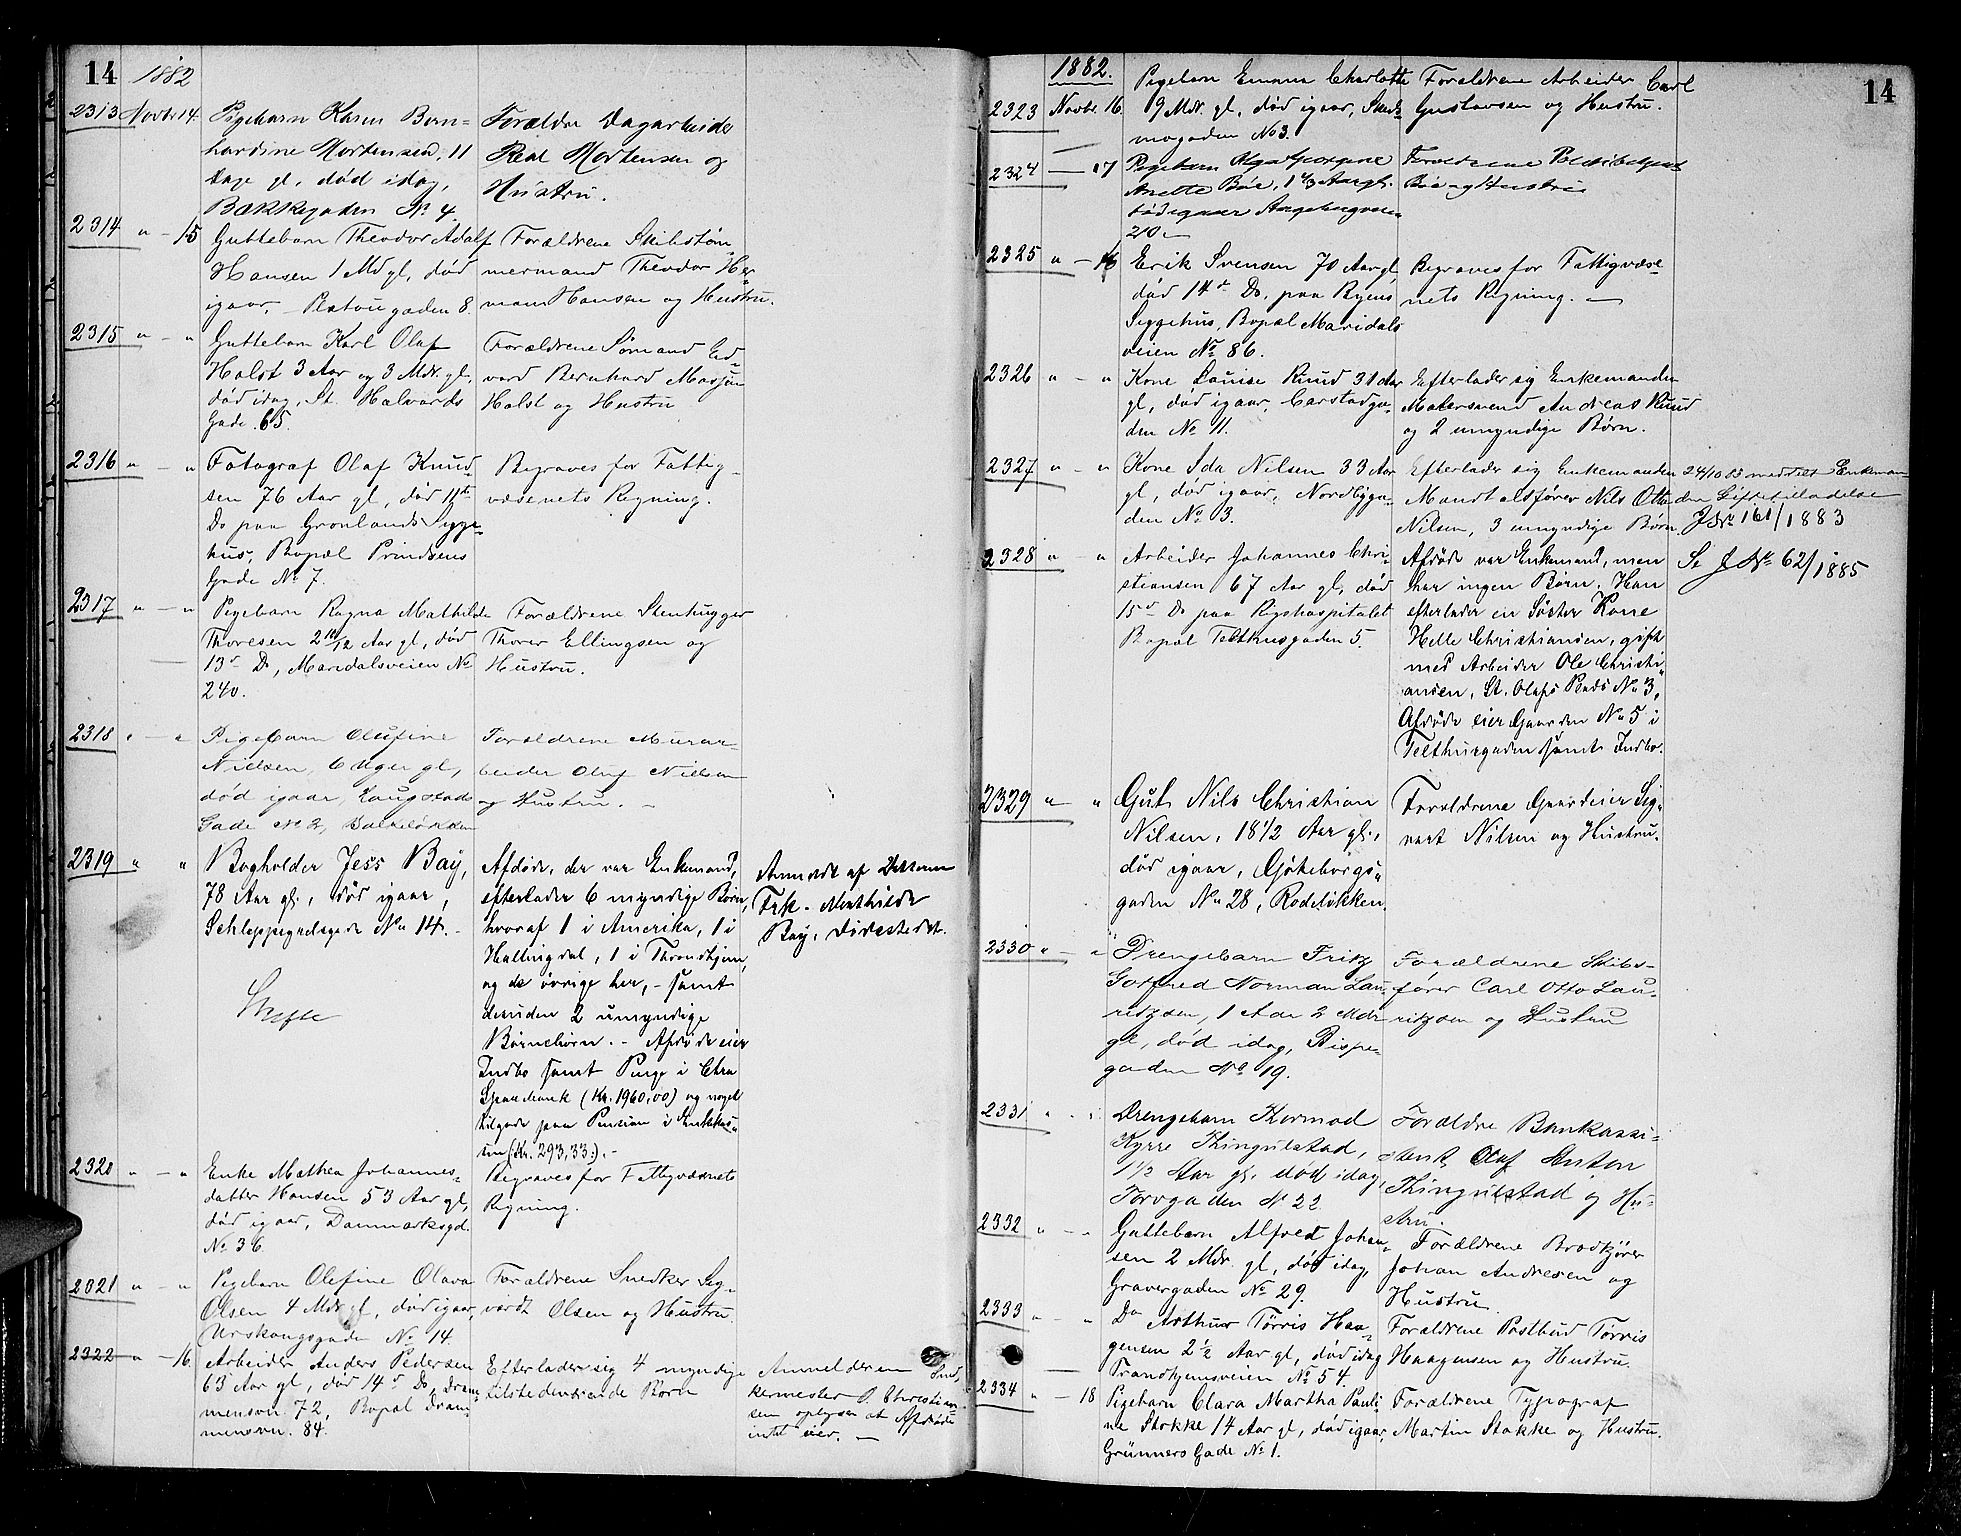 14 1882
2313 Novbr 14. Pigebarn Karen Bern=
hardine Mortensen, 11
Dage gl, død idag,
Bækkegaden No 4.
Forældre Dagarbeider
Mortensen og
Hustru.
2314 " - 15 Guttebarn Theodor Adolf
Hansen 1 Md gl, død
igaar, Platougaden 8.
Forældrene Skibstøm
mermand Theodor Her
mann Hansen og Hustru.
2315 " - " Guttebarn Karl Olaf
Holst 3 Aar og 3 Mdr. gl,
død idag, St. Halvards
Gade 65.
Forældrene Sømand Ed
vard Bernhard
Holst og Hustru
2316 " - " Fotograf Olaf Knud-
sen 76 Aar gl, død 11te
Ds paa Grønlands Syge-
hus, Bopæl Prindsens
Gade No 7.
Begraves for Fattig-
væsenets Regning.
2317 " - " Pigebarn Ragna Mathilde
Thoresen 2 10/12 Aar gl, død
13de Ds, Maridalsveien No
240.
Forældrene Stenhugger
Thorer Ellingsen og
Hustru.
2318 " - " Pigebarn Olufine
Nielsen, 6 Uger gl,
død igaar, Langstads
Gade No 2,
Forældrene Murar-
beider Oluf Nielsen
og Hustru. -
2319 " " Bogholder Jess Bay,
78 Aar gl., død igaar,
Schleppegrelsgade No 14.
Skifte
Afdøde, der var Enkemand,
efterlader 6 myndige Børn,
hvoraf 1 i Amerika, 1 i
Hallingdal, 1 i Throndhjem,
og de øvrige her, - samt
desuden 2 umyndige
Børnebørn. - Afdøde eier
Indbo samt Penge i Chra
Sparebank (Kr. 1960,00) og noget
tilgode paa Pension i Enkekas-
sen (Kr. 293,33.). -
Anmeldt af Datteren
Frk. Mathilde
Bay,
2320 " - " Enke Mathea Johannes-
datter Hansen 53 Aar gl,
død igaar, Danmarksgd.
No 36
Begraves for Fattigvæsenets
Regning.
2021 " - " Pigebarn Olefine Olava
Olsen 4 Mdr gl, død igaar,
Urskougsgaden No 14
Forældrene Snedker Sig-
vardt Olsen og Hustru
2322 " - 16. Arbeider Anders Pedersen
63 Aar gl, død 14de Ds, Dram
mensvn. 72, Bopæl Dram-
mensvn. 84.
Efterlader sig 4 myndige
tilstedeværende Børn
Anmelderen Sned
kermester O. Christian-
sen oplyser at Afdøde
intet eier. -
14
1882.
2323 Novbr. 16. Pigebarn Emma Charlotte
9 Mdr. gl, død igaar, Smids
mogaden No 3.
Forældrene Arbeider Carl
Gustavsen og Hustru.
2324 - 17 Pigebarn Olga Georgine
Anette Bøe, 1 4/3 Aar gl.
død igaar
210
Forældrene Politibetjent
Bøe og Hustru
2325 " - 16 Erik Svensen 70 Aar gl,
død 14de Ds. paa Byens
Sygehus, Bopæl Maridals
veien No 86.
Begraves for Fattigvæse-
nets Regning. -
2326 " - " Kone Louise Ruud 31 Aar
gl, død igaar, Carstadga-
den No 11.
Efterlader sig Enkemanden
Malersvend Andreas Ruud
og 2 umyndige Børn.
2327 " - " Kone Ida Nilsen 33 Aar
gl, død igaar, Nordbyga-
den No 3.
Efterlader sig Enkemanden
Mandtalsfører Nils Otto
Nilsen, 3 umyndige Børn.
24/10 83 meddelt Enkeman
den Skiftetilladelse
J No 161/1883
2328 " " Arbeider Johannes Chri-
stiansen 67 Aar gl, død
15de Ds paa Rigshospitalet
Bopæl Telthusgaden 5.
Afdøde var Enkemand, men
har ingen Børn. Han
efterlader en Søster Kone
Helle Christiansen, gift
med Arbeider Ole Christi-
ansen, St. Olafs Plads No 3,
Afdøde eier Gaarden No 5 i
Telthusgaden samt Indbo.
Se J No 62/1885
2329 " " Gut Nils Christian
Nilsen, 18 1/2 Aar gl.,
død igaar, Gøteborgs-
gaden No 28, Rodeløkken.
Forældrene Gaardeier Sig-
vart Nilsen og Hustru.
2330 " - " Drengebarn Fritz
Gotfred Norman Lau-
ritzsen, 1 Aar 2 Mdr
gl, død idag, Bispe-
gaden No 19.
Forældrene Skibs-
fører Carl Otto Lau-
ritzsen og Hustru
2331 " - " Drengebarn Kormod
Kyrre Thingulstad,
1 1/2 Aar gl. død idag,
Torvgaden No 22
Forældre Bankassi-
stent Olaf Anton
Thingulstad og Hu-
stru.
2332 " - " Guttebarn Alfred Johan
sen 2 Mdr. gl, død idag,
Gravergaden No 29.
Forældrene Brødkjører
Johan Andresen og
Hustru.
2333 " - " Do Arthur Tørris Haa-
gensen 2 1/2 Aar gl, død idag
Trondhjemsveien No 54.
Forældrene Postbud Tørris
Haagensen og Hustru.
2334 " - 18 Pigebarn Clara Martha Pauli-
ne Stokke 14 Aar gl, død igaar,
Grünners Gade No 1.
Forældrene Typograf
Martin Stokke og Hustru.
14